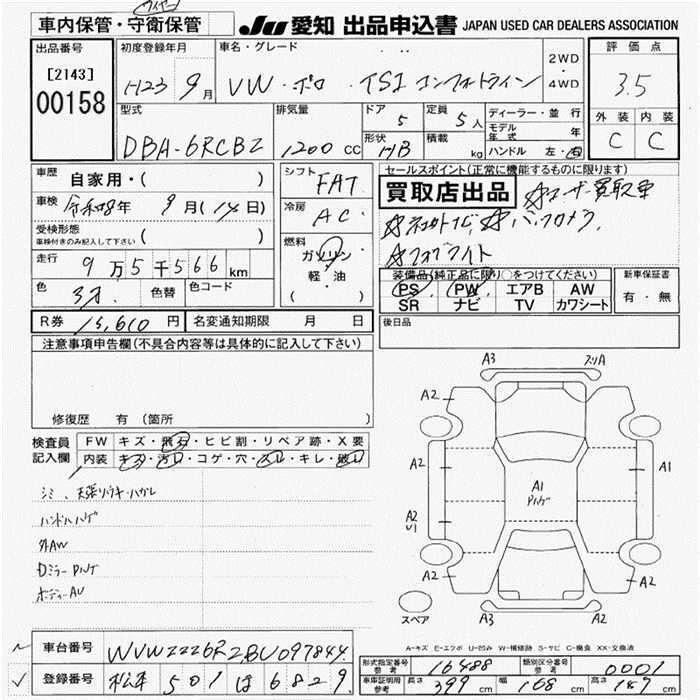 車内保管・守衛保管
JU 愛知 出品申込書 JAPAN USED CAR DEALERS ASSOCIATION
出品番号
[2143]
00158
初度登録年月
H23 9月
車名・グレード
VW ポロ TSI コンフォートライン
2WD
・
4WD
評価点
3.5
外装 内装
C C
型式
DBA-6RCBZ
排気量
1200 CC
ドア
5
定員
5人
形状
HB
積載
kg
ディーラー・並行
モデル年式 年
ハンドル 左・右
車歴 自家用・( )
車検 令和8年 9月(14日)
受検形態
車検付きのみ記入して下さい ( )
走行 9万5千566km
色 色替 色コード
シフト FAT
冷房 AC
燃料
ガソリン
軽・油
( )
セールスポイント(正常に機能するものに限り)
買取店出品
☆ユーザー買取車
☆バックカメラ
☆フォグライト
装備品(純正品に限り○をつけてください)
PS PW エアB AW
SR ナビ TV カワシート
新車保証書
有・無
R券 15,610円
名変通知期限 月 日
後日品
注意事項申告欄(不具合内容等は具体的に記入して下さい)
修復歴 有 (箇所 )
検査員
記入欄
FW キズ・飛石・ヒビ割・リペア跡・X要
内装 キズ・汚レ・コゲ・穴・スレ・キレ・破レ
シミ、天張りウキ・ハガレ
ハンドルハゲ
外AW
Dミラー Pハゲ
ボディーAU
A3
A2
A2
A1
A1
Pハゲ
A2
U1
A2
A2
A3
A2
スペア
A-キズ E-エクボ U-凹み W-補修跡 S-サビ C-腐食 XX-交換済
車台番号 WVWZZZ6RZBU097844
登録番号 松本 501 は 6829
形式指定番号
参考
16488
類別区分番号
参考
0001
車庫証明用
参考
長さ 399cm 幅 168cm 高さ 147cm